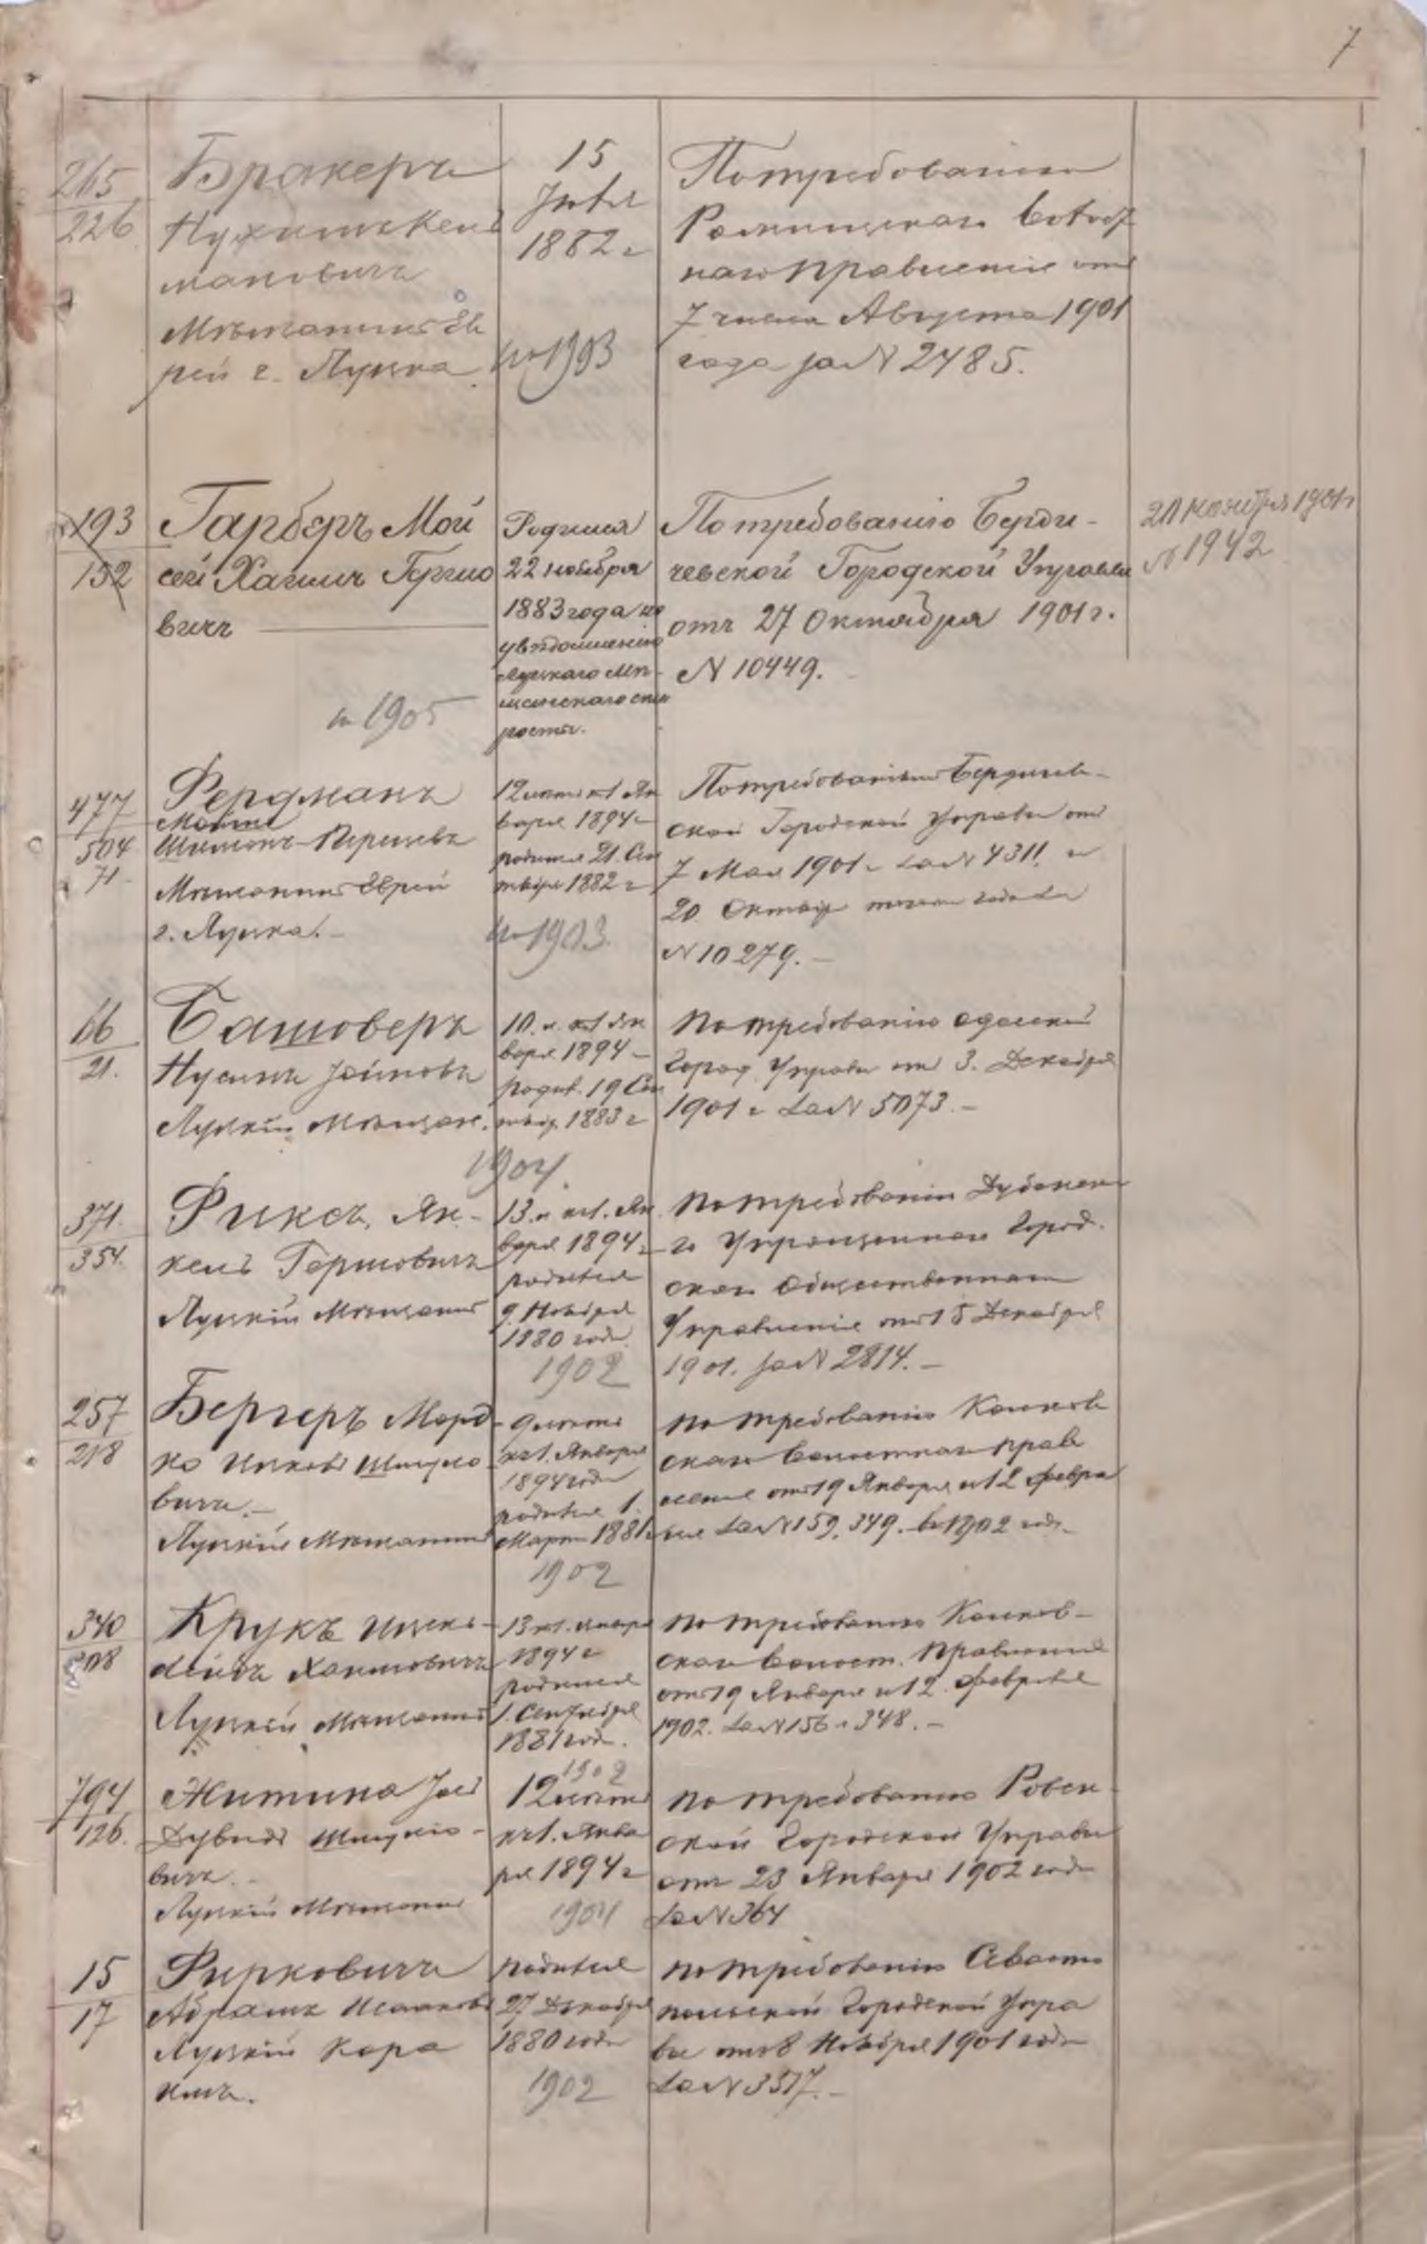 7
265
226
Бракеръ
Нухимъ Кель
мановичъ
Мѣщанинъ Ев
рей г. Луцка
15
1882 г
на 1903
По требованію
Рожищскаго Волост
наго Правленія отъ
7 числа Августа 1901
года за N 2485.
193
152
Гарберъ Мой
сей Хаимъ
вичъ
на 1905
Родился
22 ноября
1883 года по
увѣдомленію
Луцкаго Мѣ-
щанскаго ста
росты.
По требованію Берди-
чевской Городской Управы
отъ 27 Октября 1901 г.
N 10449.
21 ноября 1901 г
N 1942
477
504
71
Фердманъ
Шимонъ Перецевъ
Мѣщанинъ Еврей
г. Луцка.-
12 лѣтъ къ 1 Ян
варя 1894 г
родился 21 Сен
тября 1882 г
на 1903.
По требованіямъ Бердичев-
ской Городской Управы отъ
7 Мая 1901 г за N 4311 и
20 Октября того же года за
N 10279.-
66
21.
Башоверъ
Нусинъ
Луцкій Мѣщан.
10 л. къ 1 Ян
варя 1894 -
родив. 19 Сен
тяб. 1883 г
1904.
По требованію Одесской
Город. Управы отъ 3. Декабря
1901 г за N 5073.-
371.
354.
Фиксъ, Ян-
кель Гершовичъ
Луцкій Мѣщанинъ
13 л къ 1. Ян
варя 1894 г
родился
9 Ноября
1880 года.
1902
По требованію Дубенска
го Упрощеннаго Город.
скаго Общественнаго
Управленія отъ 15 Декабря
1901. за N 2814.-
257
218
Бергеръ Морд
ко Ицковъ Шмуло
вичъ.-
Луцкій Мѣщанинъ
къ 1. Января
1894 года
родился 1.
Марта 1881 г
1902
По требованію Колков
скаго Волостнаго Прав
ленія отъ 19 Января и 12 Февра
ля за N 159, 349. въ 1902 году
340
Крукъ Ицекъ-
Лейбъ Хаимовичъ
Луцкій Мѣщанинъ
13 къ 1. Января
1894 г
родился
1. Сентября
1881 год.
1902
По требованію Колков-
скаго Волост. Правленія
отъ 19 Января и 12. Февраля
1902. за N 156 и 348.-
794
126.
Житина
Дувидъ Шмулю-
вичъ.
Луцкій Мѣщанинъ
12 лѣтъ
къ 1. Янва
ря 1894 г
1904
По требованію Ровен
ской Городской Управы
отъ 23 Января 1902 года
за N 364
15
17
Фирковичъ
Абрамъ Исааковъ
Луцкій Кара
имъ.
родился
27 Декабря
1880 года
1902
По требованію Севасто
польской Городской Упра
вы отъ 8 Ноября 1901 года
за N 3517.-